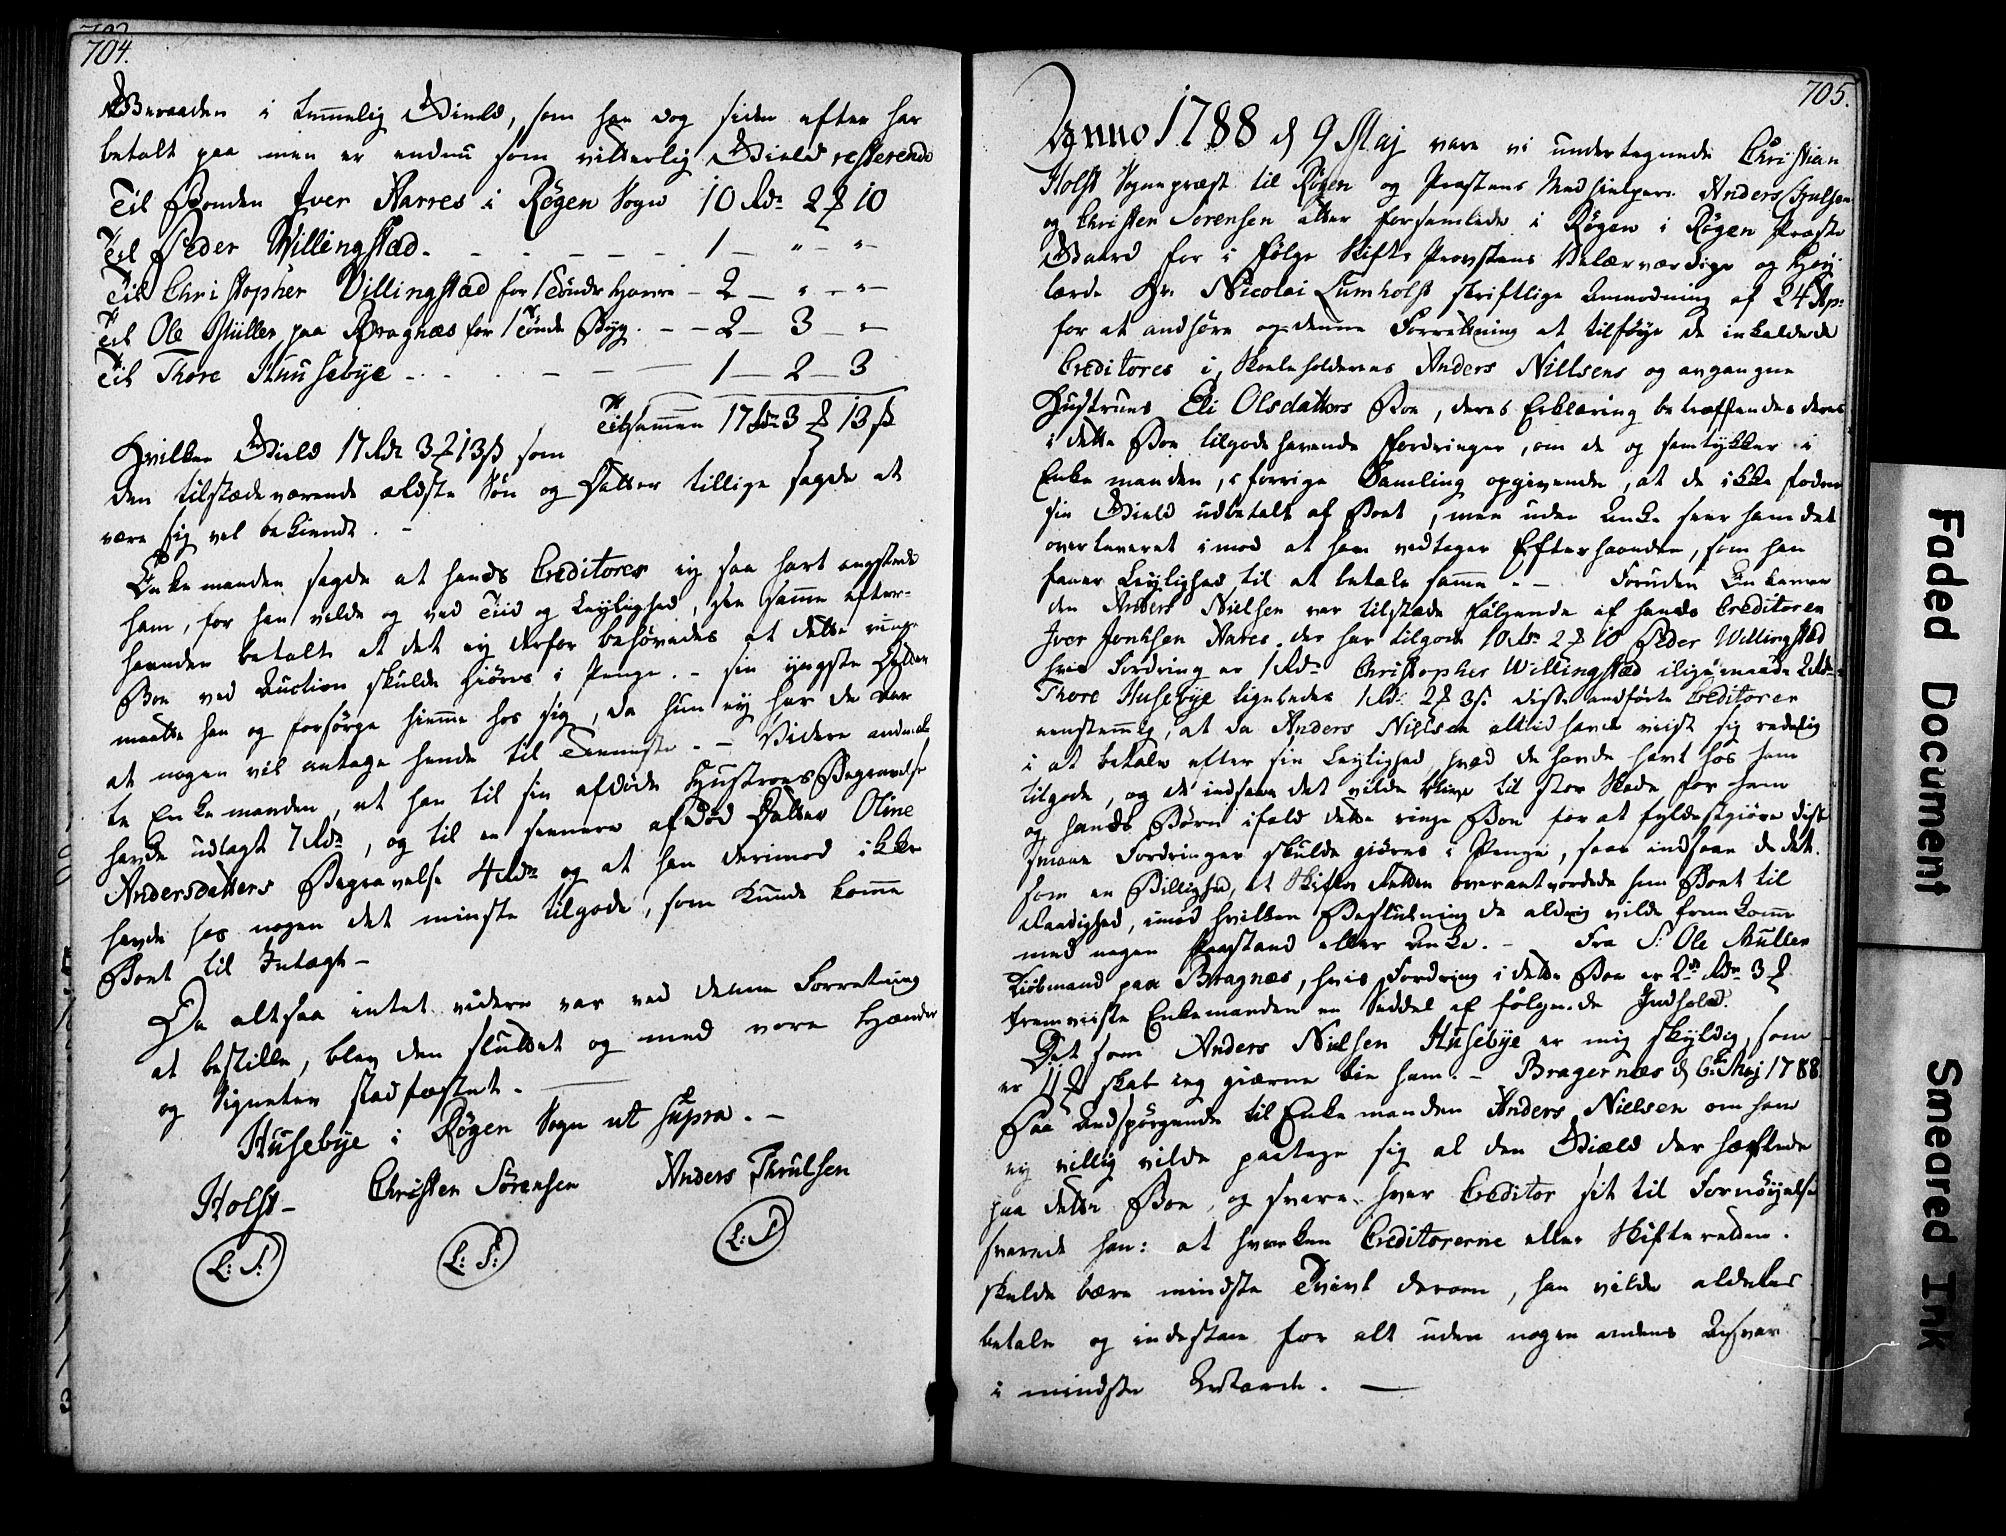 704.
Geraaden i temmelig Gield, som han dog siden efter har
betalt paa men er endnu som vitterlig Gield resterende
Til Bonden Iver Narres i Røgen Sogn 10 Rdr 2 ℔ 10
Til Peder Willingstad. - - - - - 1 — " - "-
Til Christopher Villingstad for 1 Tønde Havre - 2 — " - "-
Til Ole Müller paa Bragnæs for 1 Tønde Byg. - - 2 - 3 - "-
Til Thore Huusebye - - - - - 1 - 2 - 3
Tilsamen 17 Rdr 3 ℔ 13 ß
Hvilken Gield 17 Rdr 3 ℔ 13 ß som
den tilstædeværende ældste Søn og Datter tillige sagde at
være sig vel bekiendt. -
Enkemanden sagde at hands Creditores ey saa hart engstede
ham, for han vilde og ved Tiid og Leylighed, den samme efter-
haanden betalt at det ey derfor behøvedes at dette ringe
Boe ved Auction skulde giøres i Penge. - sin yngste Datter
maatte han og forsørge hiemme hos sig, da hun ey har de
at nogen vil antage hende til Tienniste. - Videre andmeld-
te Enkemanden, at han til sin afdøde Hustroes Begravelse
havde udlagt 7 Rdr, og til en sennere afdød Datter Oline
Andersdatters Begravelse 4 Rdr og at han derimod ikke
havde hos nogen det mindste tilgode, som kunde komme
Boet til Indtægt -
Da altsaa intet videre var ved denne Forretning
at bestille, blev den sluttet og med vore Hænder
og Signeter stadfæstet. -
Husebye i Røgen Sogn ut supra. -
Holst - Christen Sørensen Anders Thrulsen
L: S: L: S: L: S:
705.
Anno 1788 d 9 Maj vare vi undertegnede Christian
Holst Sognepræst til Røgen og Præstens Medhielpere Anders Thrulsen
og Christen Sørensen atter forsamlede i Røgen i Røgen Præste
Gaard for i følge Skifte Provstens Velærværdige og Høy-
lærde Hr. Nicolai Lumholst skriftlige Anmodning af 24 Apr:
for at andhøre og denne Forretning at tilføye de inkaldede
Creditores i Skoleholderens Anders Nielsens og avgangne
Hustrues Eli Olsdatters Boe, deres Erklæring betræffendes deres
i dette Boe tilgodehavende Fordringer, om de og samtykker i
Enkemanden, i forrige Samling opgivende, at de ikke fodrer
sin Gield udbetalt af Boet, men uden Anke seer ham det
overleveret imod at han vedtager Efterhaanden, som han
faaer Leylighed til at betale samme. - Foruden Enkeman-
den Anders Nielsen var tilstæde følgende af hands Creditorer
Iver Jonhsen Nares, der har tilgode 10 Rdr 2 ℔ 10 Peder Willingstad
hvis Fordring er 1 Rdr Christopher Willingstad iligemaade 2 Rdr
Thore Husebye ligeledes 1 Rd. 2 ℔ 3 ß. disse andførte Creditorer
eenstemmig, at da Anders Nielsen altiid havde viist sig redelig
i at betale efter sin Leylighed, hvad de havde havt hos ham
tilgode, og de indsaae det vilde blive til stor Skade for ham
og hands Børn ifald dette ringe Boe for at fyldestgiøre disse
smaae Fordringer skulde giøres i Penge, saae indsaae de det
som en Billighed, at Skifte Retten overantvordede ham Boet til
Raadighed, imod hvilken Beslutning de aldrig vilde fremkomme
med nogen Paastand eller Anke. - Fra S: Ole Müller
Kiøbmand paa Bragnæs, hvis Fordring i dette Boe er 2 Rdr 3 ℔
fremviiste Enkemanden en Seddel af følgende Indhold:
Det som Anders Nielsen Husebye er mig skyldig, som
er 11 ℔ skal ieg giærne bie ham. - Bragernæs d 6 Maj 1788
Paa Andspørgende til Enkemanden Anders Nielsen om han
ey villig vilde paatage sig al den Giæld der hæftede
paa dette Boe, og svare hver Creditor sit til Fornøyelse
svarede han: at hverken Creditorerne eller Skifteretten
skulde bære mindste Tvivl derom, han vilde aldeles
betale og indestaae for alt uden nogen andens Ansvar
i mindste Maade. —
Faded Document
Smeared Ink